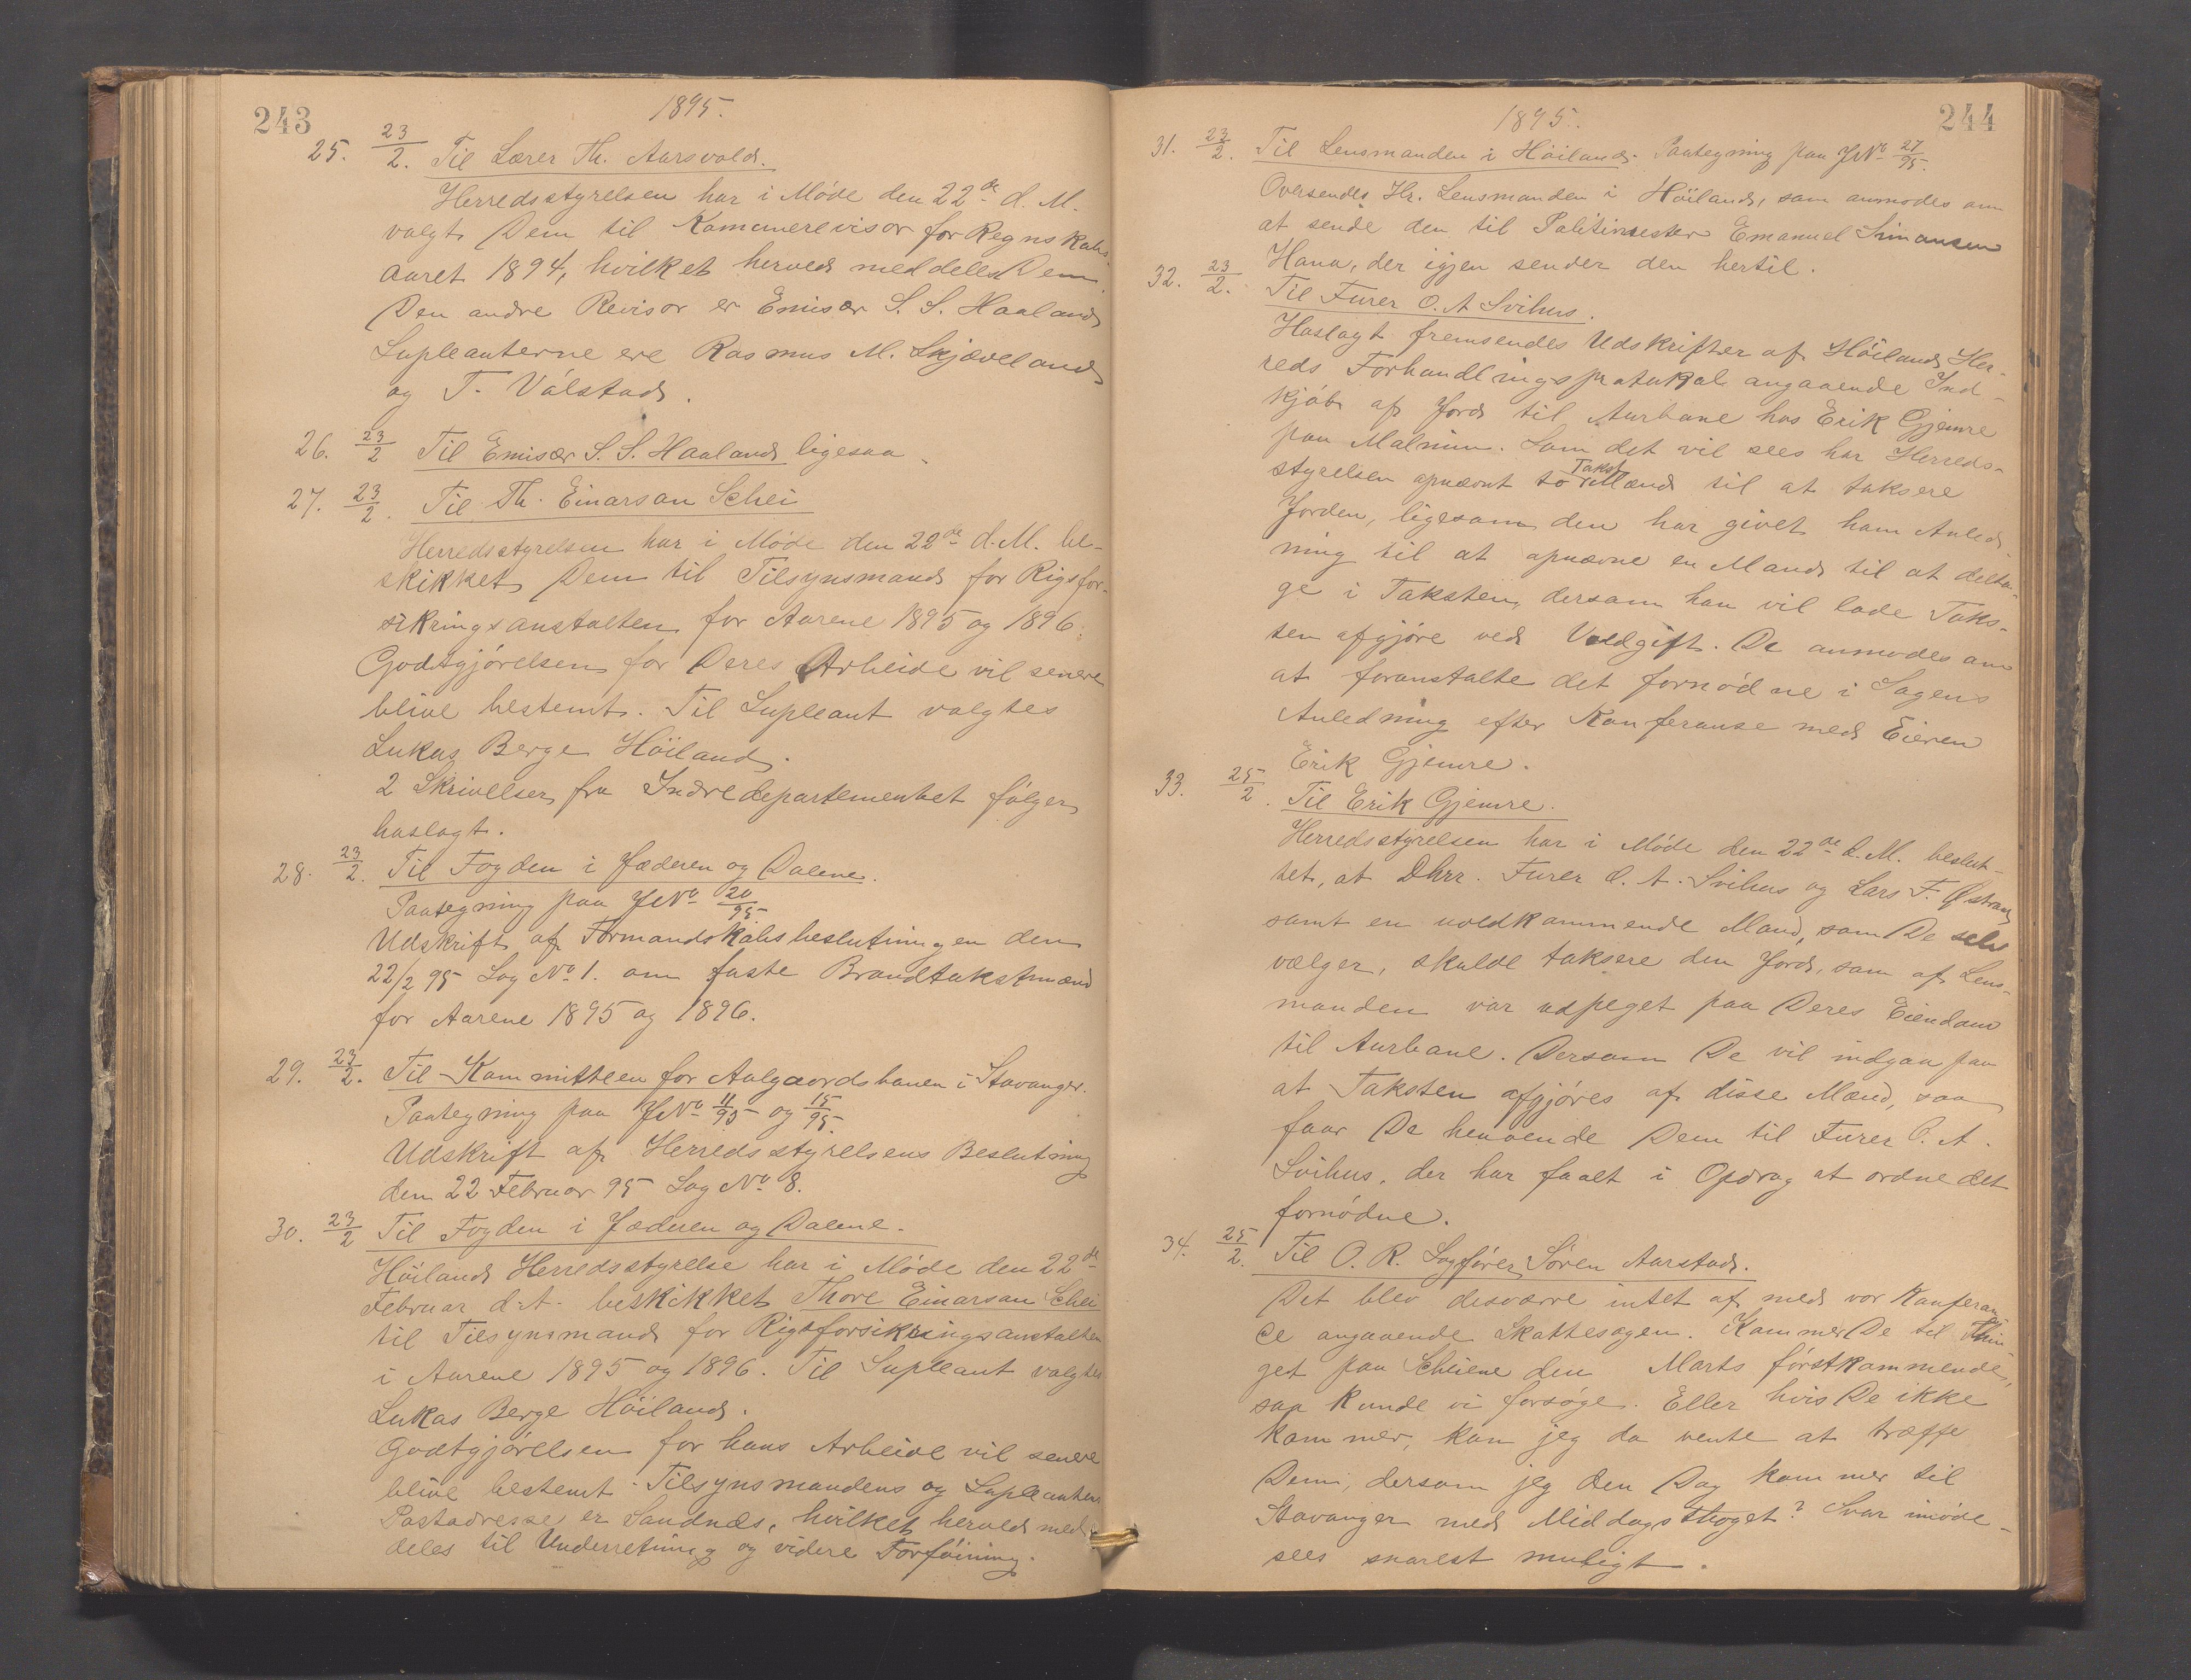 243
1895.
25. 23/2. Til Lærer Th. Aarsvold.
Herredsstyrelsen har i Møde den 22de d. M.
valgt Dem til Kommunerevisor for Regnskabs-
aaret 1894, hvilket herved meddeles Dem.
Den andre Revisor er Emisær S. S. Haaland
Supleanterne ere Rasmus M. Skjæveland
og T. Vålstad.
26. 23/2 Til Emisær S. S. Haaland ligesaa.
27. 23/2. Til Th. Einarson Schei
Herredsstyrelsen har i Møde den 22de d. M. be-
skikket Dem til Tilsynsmand for Rigsfor-
sikringsanstalten for Aarene 1895 og 1896.
Godtgjørelsen for Deres Arbeide vil senere
blive bestemt. Til Supleant valgtes
Lukas Berge Höiland.
2 Skrivelser fra Indredepartementet følger
hoslagt.
28. 23/2. Til Fogden i Jæderen og Dalene.
Paategning paa JNo 20/95.
Udskrift af Formandskabsbeslutningen den
22/2 95 Sag No 1. om faste Brandtakstmænd
for Aarene 1895 og 1896.
29. 23/2. Til Kommitteen for Aalgaardsbanen i Stavanger.
Paategning paa JNo 11/95 og 15/95.
Udskrift af Herredsstyrelsens Beslutning
den 22 Februar 95 Sag No 8.
30. 23/2 Til Fogden i Jæderen og Dalene.
Höilands Herredsstyrelse har i Møde den 22de
Februar d. A. beskikket Thore Einarson Schei
til Tilsynsmand for Rigsforsikringsanstalten
i Aarene 1895 og 1896. Til Supleant valgtes
Lukas Berge Höiland.
Godtgjørelsen for hans Arbeide vil senere
blive bestemt. Tilsynsmandens og Supleantens
Postadresse er Sandnæs, hvilket herved med-
deles til Underretning og videre Forføining.
244
1895.
31. 23/2. Til Lensmanden i Höiland. Paategning paa JNo 27/95.
Oversendes Hr. Lensmanden i Höiland, som anmodes om
at sende den til Politimester Emanuel Simonsen
Hana, der igjen sender den hertil.
32. 23/2. Til Furer O. A Svihus.
Hoslagt fremsendes Udskrifter af Höilands Her-
reds Forhandlingsprotokol angaaende Ind-
kjøb af Jord til Aurbane hos Erik Gjemre
paa Malmim. Som det vil sees har Herreds-
styrelsen opnævnt to Takstmænd til at taksere
Jorden, ligesom den har givet ham Anled-
ning til at opnævne en Mand til at delta-
ge i Taksten, dersom han vil lade Taks-
ten afgjøre ved Voldgift. De anmodes om
at foranstalte det fornødne i Sagens
Anledning efter Konferanse med Eieren
Erik Gjemre.
33. 25/2. Til Erik Gjemre.
Herredsstyrelsen har i Møde den 22de d. M. beslut-
tet, at Dhrr. Furer O. A. Svihus og Lars F. Østraad
samt en uvedkommende Mand, som De selv
vælger, skulde taksere den Jord, som af Lens-
manden var udpeget paa Deres Eiendom
til Aurbane. Dersom De vil indgaa paa
at Taksten afgjøres af disse Mænd, saa
faar De henvende Dem til Furer O. A.
Svihus, der har faaet i Opdrag at ordne det
fornødne.
34. 25/2. Til O. R. Sagfører Søren Aarstad.
Det blev desværre intet af med vor Konferan-
ce angaaende Skattesagen. Kommer De til Thin-
get paa Scheiene den Marts førstkommende,
saa kunde vi forsøge. Eller hvis De ikke
kommer, kan jeg da vente at træffe
Dem, dersom jeg den Dag kommer til
Stavanger med Middagsthoget? Svar imøde-
sees snarest muligt.